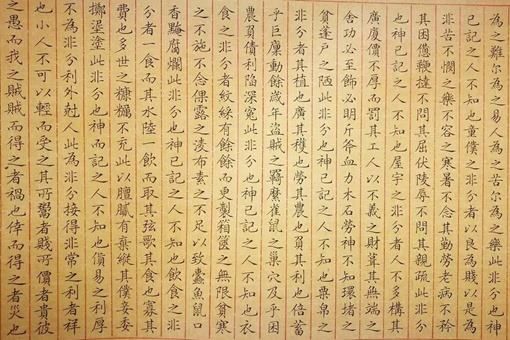 為之難尔為之易人為之苦尔為之樂此非分也神
已記之人不知也童僕之非分者以良為賤以是為
非苦不憫之樂不容之寒暑不念其勤勞老病不矜
其困憊鞭撻不問其屈伏陵辱不問其親疏此非分
也神已記之人不知也屋宇之非分者人不多構其
廣廈價不厚而罰其工人以不義之財葺其無端之
舍功必至飾必明斤斧血力木石勞神不知環堵之
貧蓬戶之陋此非分也神已記之人不知也粟帛之
非分者其植也廣其穫也勞其農也負其利也倍蓄
乎巨廩動餘歲年盜賊之羈縻雀鼠之巢穴及乎困
農負債利陷深冤此非分也神已記之人不知也衣
食之非分者紋綵有餘餘而更製箱篋之無限貧寒
之不施不念倮露之凌布素之不足以致蠹魚鼠口
香黦腐爛此非分也神已記之人不知也飲食之非
分者一食而其水陸一飲而取其弦歌其食也寡其
費也多世之糠糲不充此以膻膩有棄縱其僕妾委
擲埿塗此非分也神而記之人不知也貨易之利厚
不為非分利外尅人此為非分接得非常之利者祥
也小人不可以輕而受之其所鬻者賤所價者貴彼
之愚而我之賊賊而得之者禍也倖而得之者災也